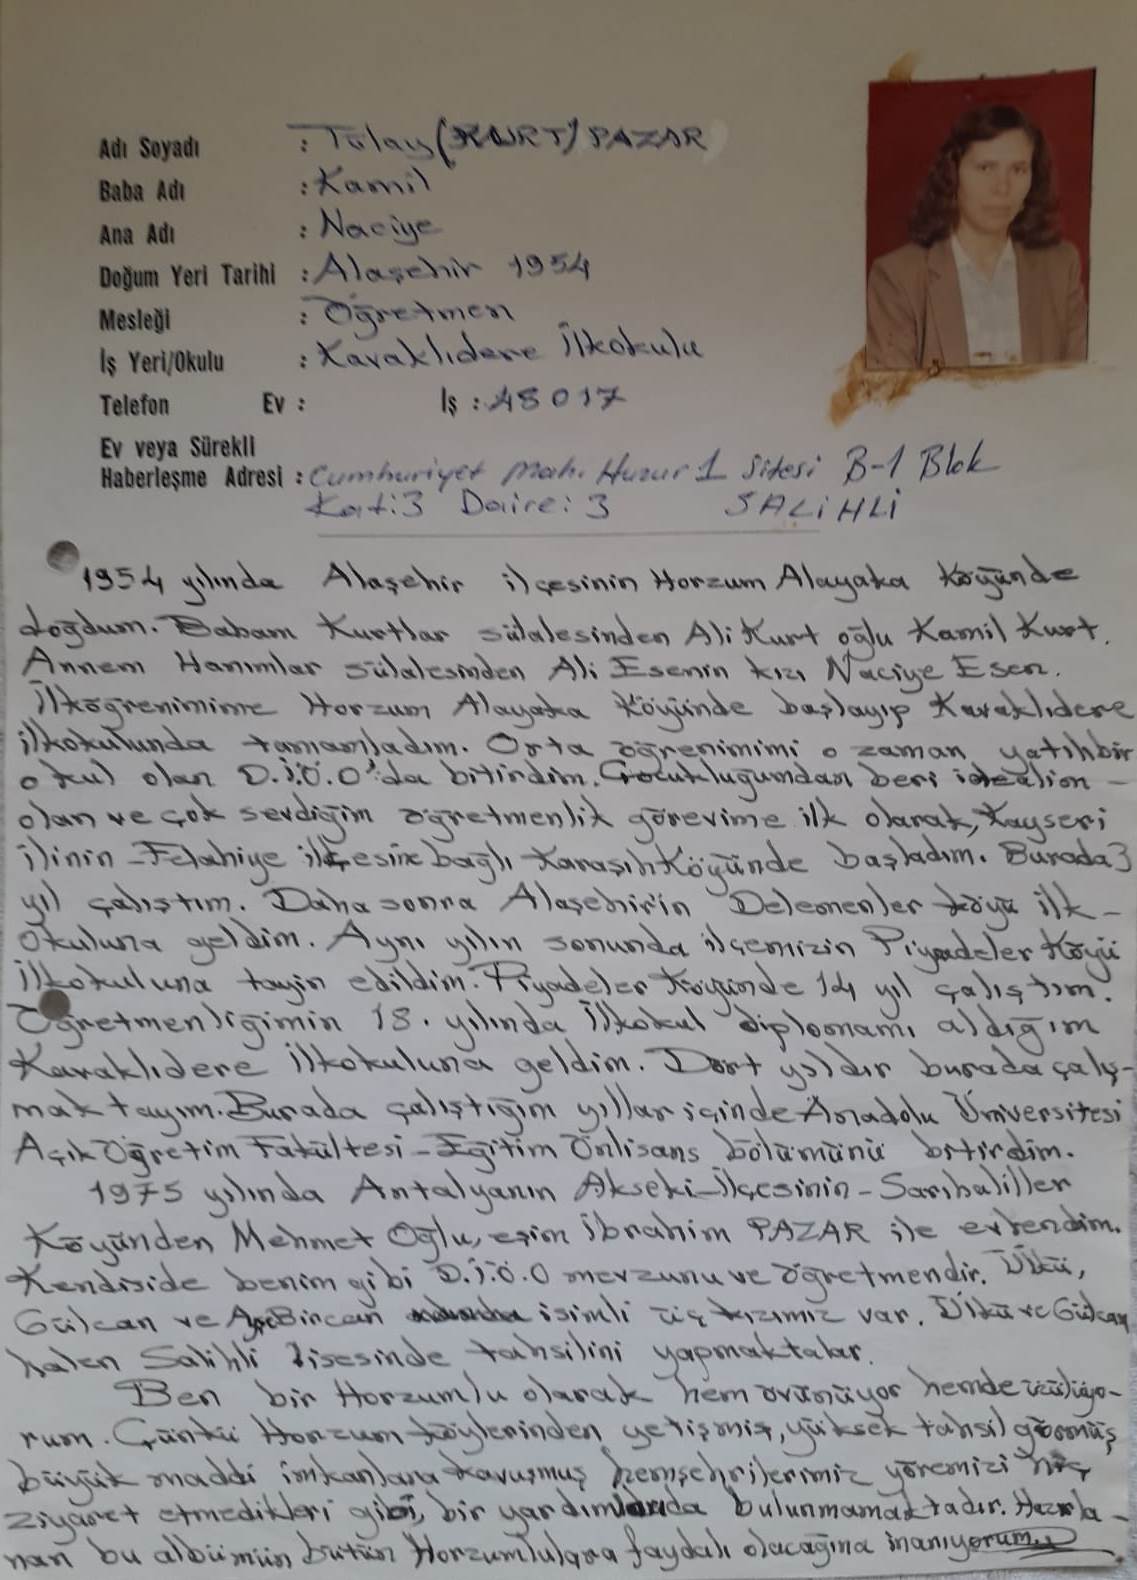 Adı Soyadı : Tülay (KURT) PAZAR
Baba Adı : Kamil
Ana Adı : Naciye
Doğum Yeri Tarihi : Alaşehir 1954
Mesleği : Öğretmen
İş Yeri/Okulu : Kavaklıdere İlkokulu
Telefon Ev : İş : 48017
Ev veya Sürekli
Haberleşme Adresi : Cumhuriyet Mah. Huzur 1 Sitesi B-1 Blok
Kat: 3 Daire: 3 SALİHLİ
1954 yılında Alaşehir ilçesinin Horzum Alayaka Köyünde
doğdum. Babam Kurtlar sülalesinden Ali Kurt oğlu Kamil Kurt.
Annem Hanımlar sülalesinden Ali Esenin kızı Naciye Esen.
İlköğrenimime Horzum Alayaka Köyünde başlayıp Kavaklıdere
ilkokulunda tamamladım. Orta öğrenimimi o zaman yatılı bir
okul olan D.İ.Ö.O'da bitirdim. Çocukluğumdan beri idealim
olan ve çok sevdiğim öğretmenlik görevime ilk olarak, Kayseri
ilinin Felahiye ilçesine bağlı Karaşıh Köyünde başladım. Burada 3
yıl çalıştım. Daha sonra Alaşehir'in Delemenler köyü ilk-
okuluna geldim. Aynı yılın sonunda ilçemizin Piyadeler Köyü
İlkokuluna tayin edildim. Piyadeler Köyünde 14 yıl çalıştım.
Öğretmenliğimin 18. yılında İlkokul diplomamı aldığım
Kavaklıdere ilkokuluna geldim. Dört yıldır burada çalış-
maktayım. Burada çalıştığım yıllar içinde Anadolu Üniversitesi
Açık Öğretim Fakültesi - Eğitim Önlisans bölümünü bitirdim.
1975 yılında Antalyanın Akseki - İlçesinin - Sarıhaliller
Köyünden Mehmet Oğlu, eşim İbrahim PAZAR ile evlendim.
Kendiside benim gibi D.İ.Ö.O mevzunu ve öğretmendir. Ülkü,
Gülcan ve Bircan isimli üç kızımız var. Ülkü ve Gülcan
halen Salihli lisesinde tahsilini yapmaktalar.
Ben bir Horzumlu olarak hem övünüyor hemde üzülüyo-
rum. Çünkü Horzum köylerinden yetişmiş, yüksek tahsil görmüş
büyük maddi imkanlara kavuşmuş hemşehrilerimiz yöremizi hiç
ziyaret etmedikleri gibi, bir yardımda bulunmamaktadır. Hazırla-
nan bu albümün bütün Horzumlulara faydalı olacağına inanıyorum.